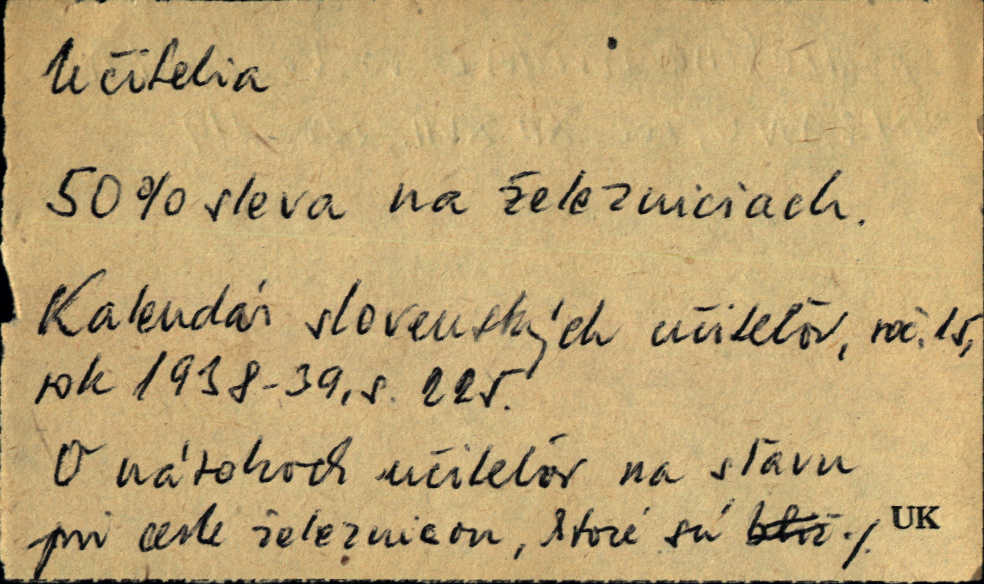 Učitelia
50% sleva na železniciach.
Kalendár slovenských učiteľov, roč. 15,
rok 1938-39, s. 225.
O nárokoch učiteľov na sľavu
pri ceste železnicou, ktoré sú ./.
UK